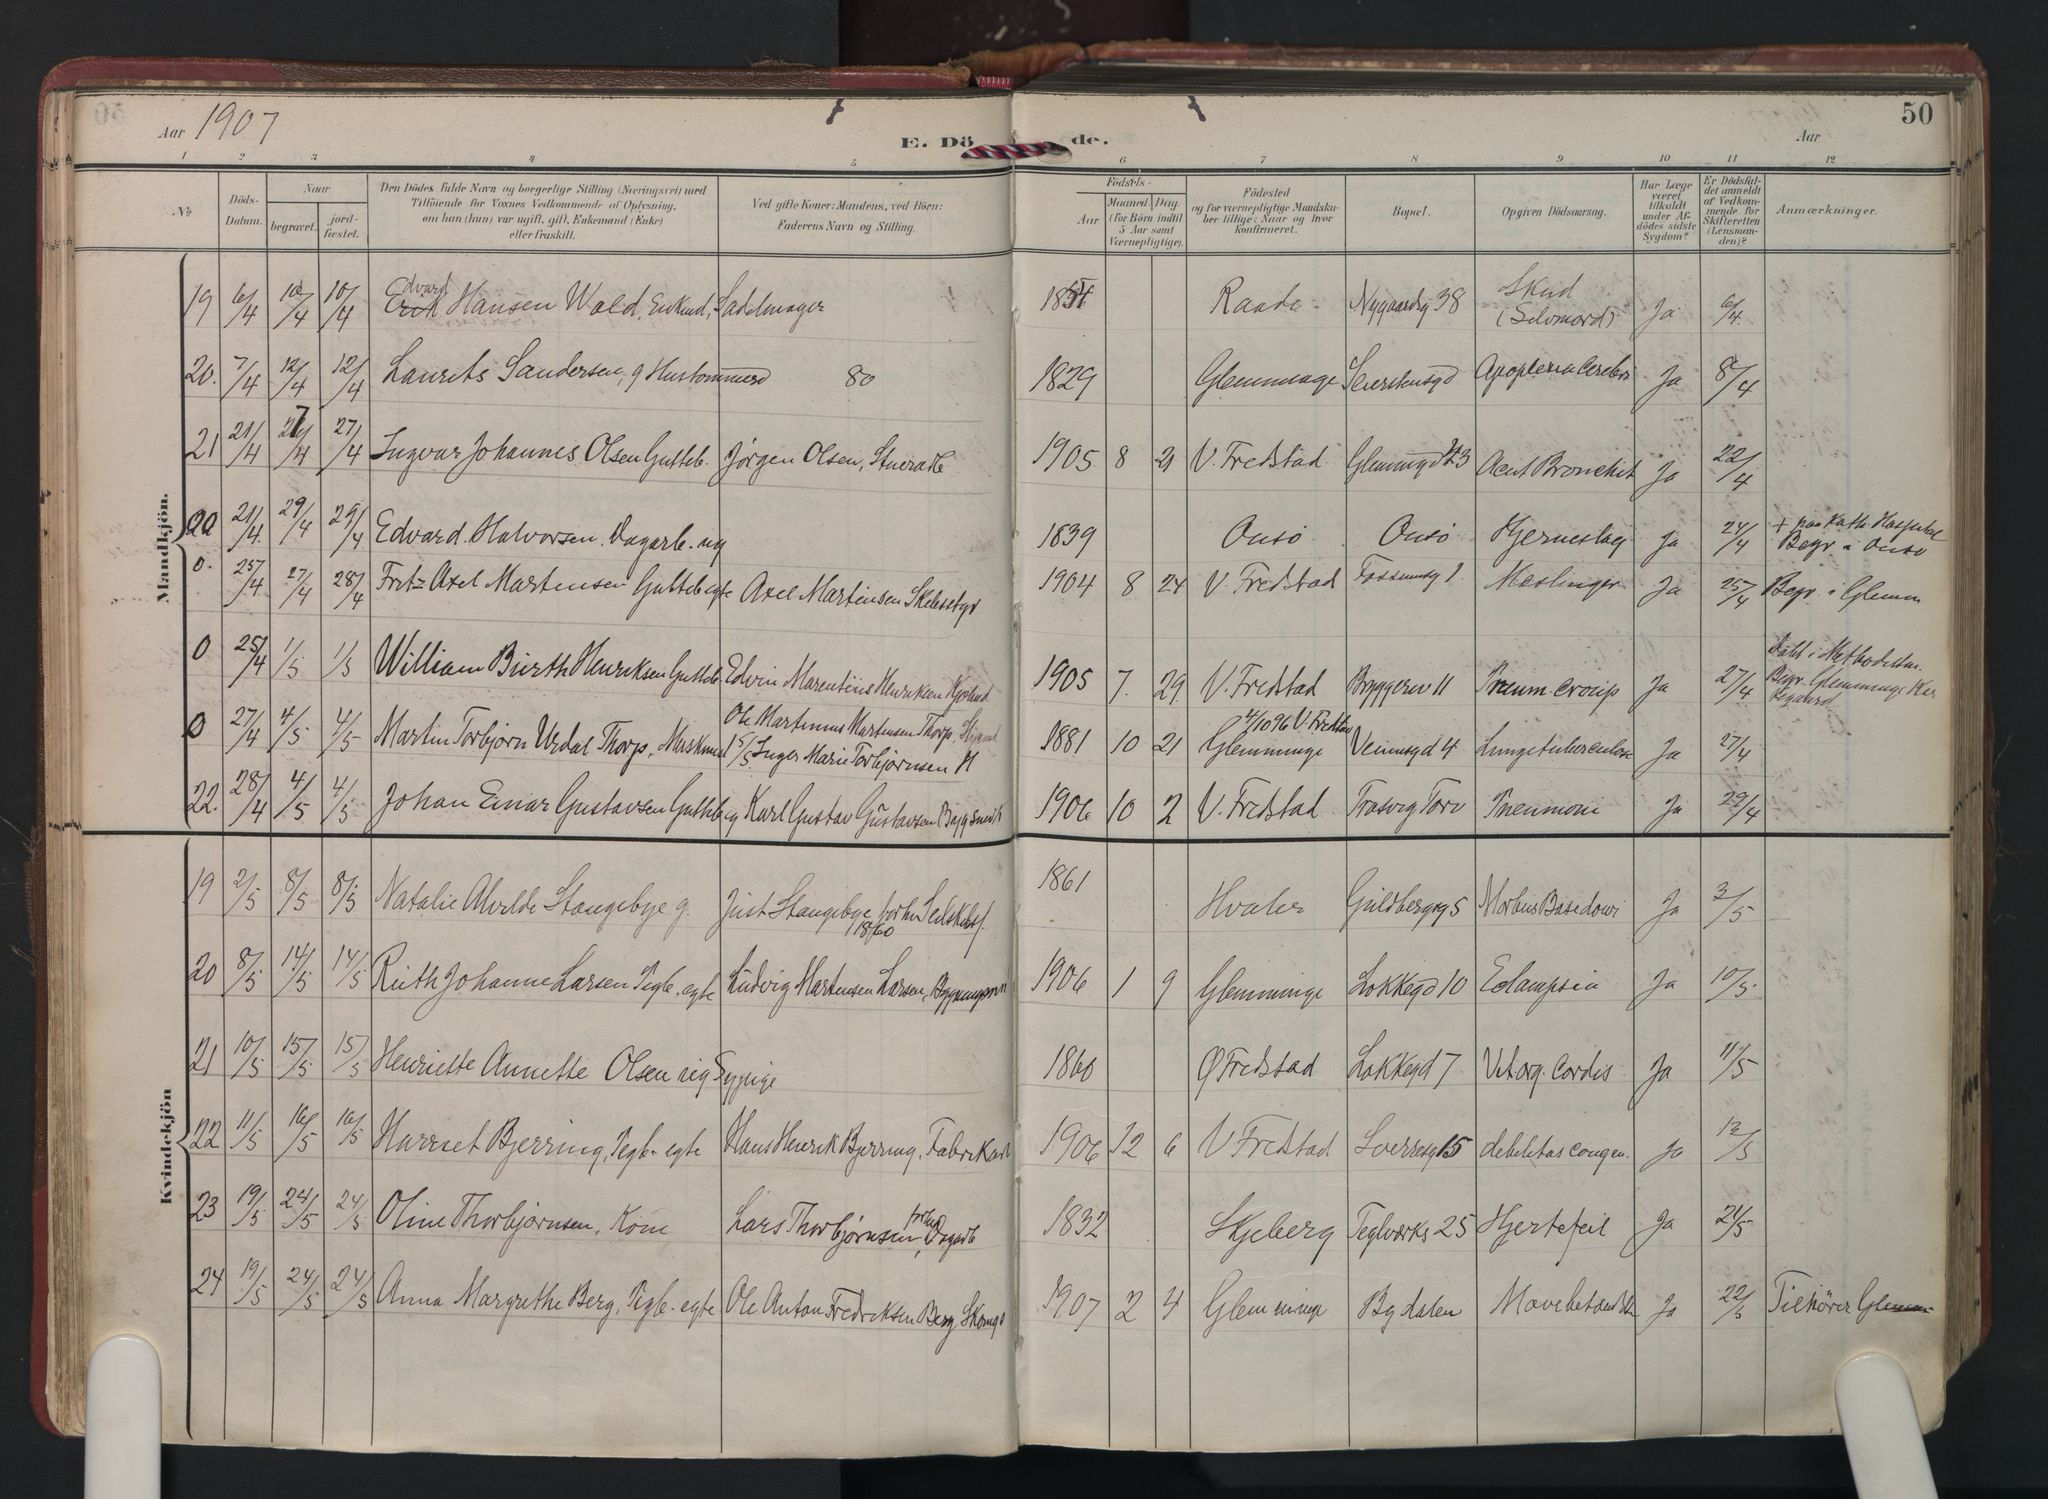 Aar 1907
E. Dö de.
Aar
50
1 2 3 4 5 6 7 8 9 10 11 12
No
Döds-Datum.
Naar
begravet.
jord-fæstet.
Den Dödes fulde Navn og borgerlige Stilling (Næringsvei) med
Tilföiende for Voxnes Vedkommende af Oplysning,
om han (hun) var ugift, gift, Enkemand (Enke)
eller fraskilt.
Ved gifte Koner: Mandens, ved Börn:
Faderens Navn og Stilling.
Födsels-
Aar
Maaned. Dag.
(for Börn indtil
5 Aar samt
Værnepligtige).
Födested
og for værnepligtige Mandsku-
ber tillige: Naar og hvor
konfirmeret.
Bopæl.
Opgiven Dödsaarsag.
Har Læge
været
tilkaldt
under Af-
dödes sidste
Sygdom?
Er Dödsfal-
det anmeldt
af Vedkom-
mende for
Skifteretten
(Lensman-
den)?
Anmærkninger.
Mandkjön.
19 6/4 10/4 10/4 Edvard Hansen Wold, Enkmd, Sadelmager Raade Nygaardsg 38 Skud (Selvmord) Ja 6/4
20. 7/4 12/4 12/4 Laurits Sandersen, g Hustømmerd 80 1829 Glemminge Apoplexia Cerebri Ja 8/4
21 21/4 27/4 27/4 Ingvar Johannes Olsen Gutteb. Jørgen Olsen, 1905 8 21 V. Fredstad Glemmgd 43 Acut Bronchit Ja 22/4
22 21/4 29/4 29/4 Edvard Halvorsen Dagarb. ug 1839 Onsö Onsö Hjerneslag Ja 24/4 + paa Kath Hospital Begr. i Onsö
0. 25/4 27/4 28/4 Fritz Axel Martensen Gutteb egte Axel Martensen 1904 8 24 V. Fredstad Fossumsg 1. Meslinger Ja 25/4 Begr. i Glemm
0 25/4 1/5 1/5 William Birth Henriksen Gutteb. Edvin Marentius Henriksen 1905 7. 29. V. Fredstad Bryggeriv 11 Pneum. Croup Ja 27/4 Døbt i Methodistm. Begr. Glemminge
0 27/4 4/5 4/5 Martin Torbjørn Urdal Thorp, Ole Martinus Martensen Thorp, Inger Marie Torbjørnsen 1881 10 21 4/10 96 V. Fredstad Glemminge Veumsgd 4 Lungetuberculose Ja 27/4
22. 28/4 4/5 4/5 Johan Einar Gustavsen Gutteb eg Karl Gustav Gustavsen 1906 10 2 V. Fredstad Trosvig Torv Pneumoni Ja 29/4
Kvindekjön
19 2/5 8/5 8/5 Natalie Alvilde Stangebye g. Just Stangebye forhv 1860 1861 Hvaler Guldbergsg 5 Morbus Basedowi Ja 3/5
20 8/5 14/5 14/5 Ruth Johanne Larsen Pigb. egte Ludvig Martensen Larsen, 1906 1 9 Glemminge Lokkegd 10 Eclampsia Ja 10/5
21 10/5 15/5 15/5 Henriette Annette Olsen ug Sypige 1860 Ø Fredstad Lokkegd 7 Vit. org. Cordis Ja 11/5
22 11/5 16/5 16/5 Harriet Bjerring, Pigb. egte Hans Henrik Bjerring, Fabrikarb 1906 12 6 V Fredstad Sverresg 15 debilitas congen. Ja 13/5
23 19/5 24/5 24/5 Oline Thorbjørnsen, Kone Lars Thorbjørnsen, forhv Dagarb 1832 Skjeberg Teglværks 25 Hjertefeil Ja 21/5
24 19/5 24/5 24/5 Anna Margrethe Berg, Pigb. egte Ole Anton Fredriksen Berg 1907 2 4 Glemminge Bydalen Ja 22/5 Tilhører Glemm